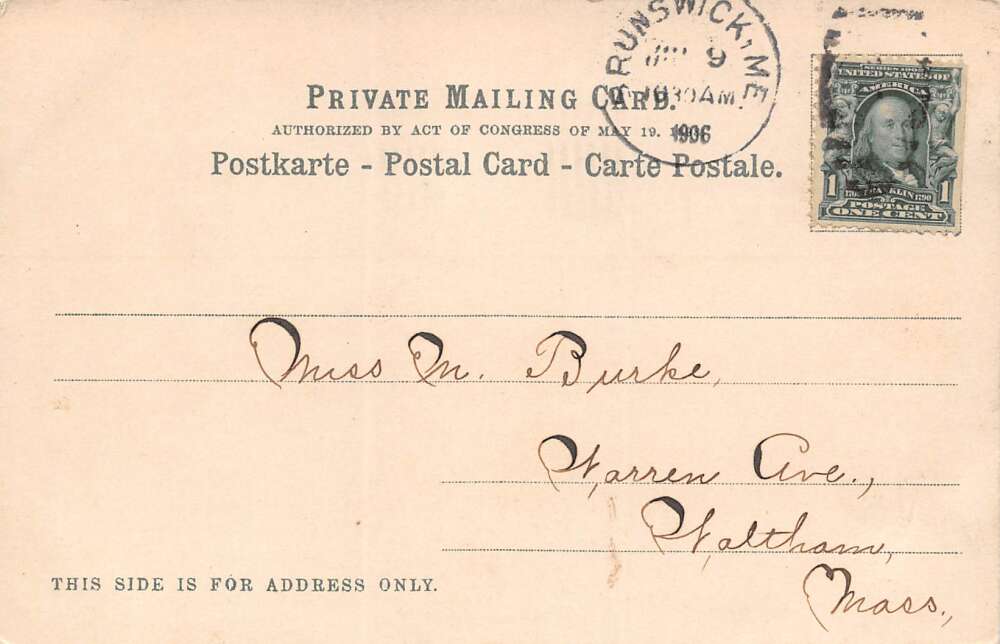 PRIVATE MAILING CARD.
AUTHORIZED BY ACT OF CONGRESS OF MAY 19.
Postkarte - Postal Card - Carte Postale.
BRUNSWICK, ME.
9
1030AM
1906
SERIES 1902
UNITED STATES OF
AMERICA
1 FRANKLIN 1790 1
POSTAGE
ONE CENT
Miss M. Burke,
Warren Ave.,
Waltham,
Mass.,
THIS SIDE IS FOR ADDRESS ONLY.